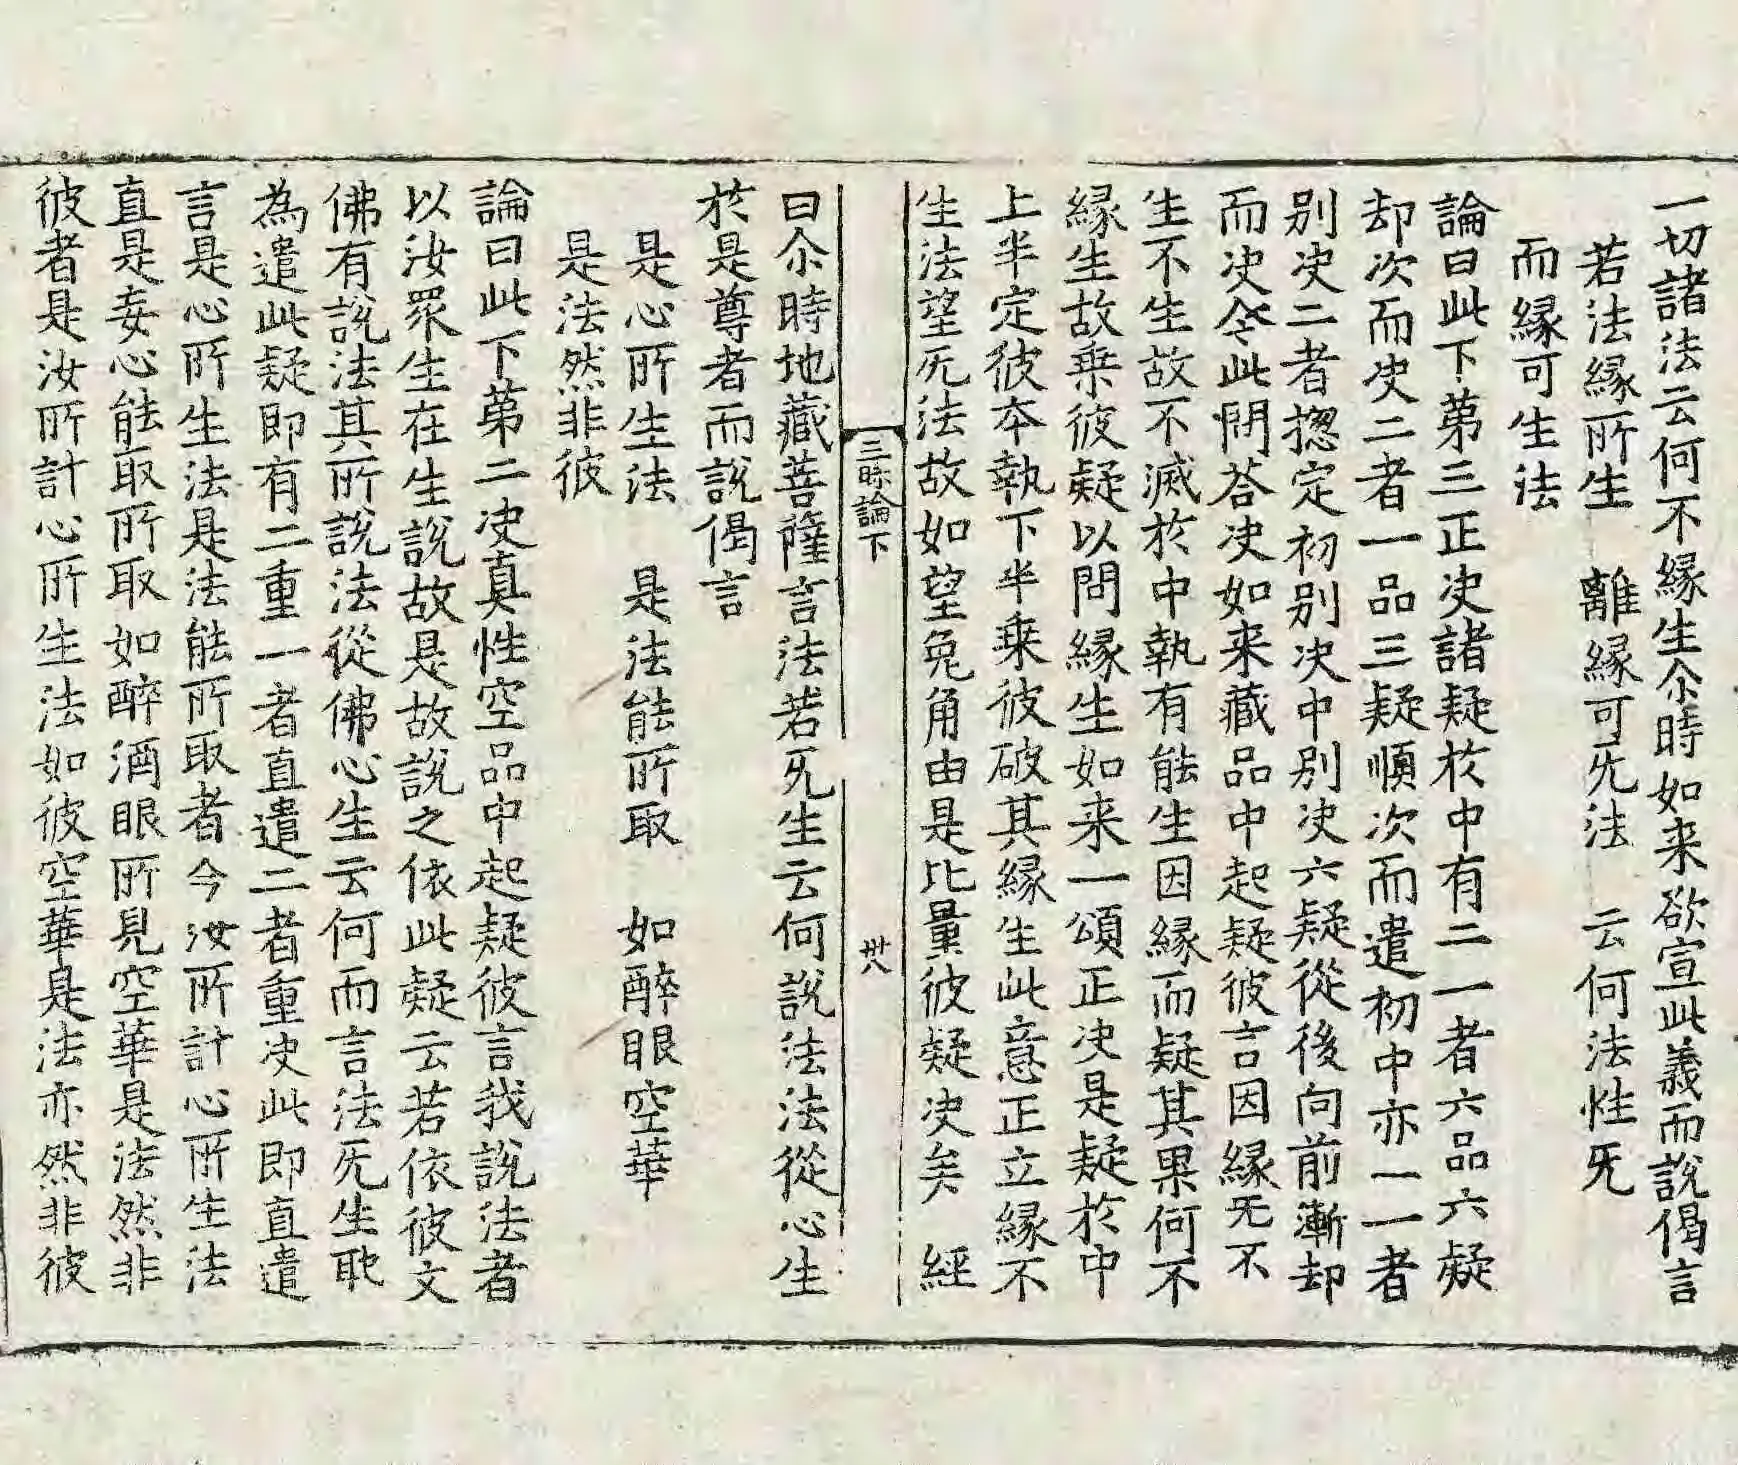 一切諸法云何不縁生尒時如来欲宣此義而說偈言
若法縁所生　離縁可旡法　云何法性旡
而縁可生法
論曰此下第三正决諸疑於中有二一者六品六疑
却次而决二者一品三疑順次而遣初中亦一一者
別决二者揔定初别决中別决六疑從後向前漸却
而决今此問荅决如来藏品中起疑彼言因縁旡不
生不生故不滅於中執有能生因縁而疑其果何不
縁生故乗彼疑以問縁生如来一頌正决是疑於中
上半定彼本執下半乗彼破其縁生此意正立縁不
生法望旡法故如望兔角由是比量彼疑决矣　經
三昧論下　卅八
曰尒時地藏菩薩言法若旡生云何說法法從心生
於是尊者而說偈言
是心所生法　是法能所取　如醉眼空華
是法然非彼
論曰此下第二决真性空品中起疑彼言我說法者
以汝衆生在生說故是故說之依此疑云若依彼文
佛有說法其所說法從佛心生云何而言法旡生耶
為遣此疑即有二重一者直遣二者重决此即直遣
言是心所生法是法能所取者今汝所計心所生法
直是妄心能取所取如醉酒眼所見空華是法然非
彼者是汝所計心所生法如彼空華是法亦然非彼